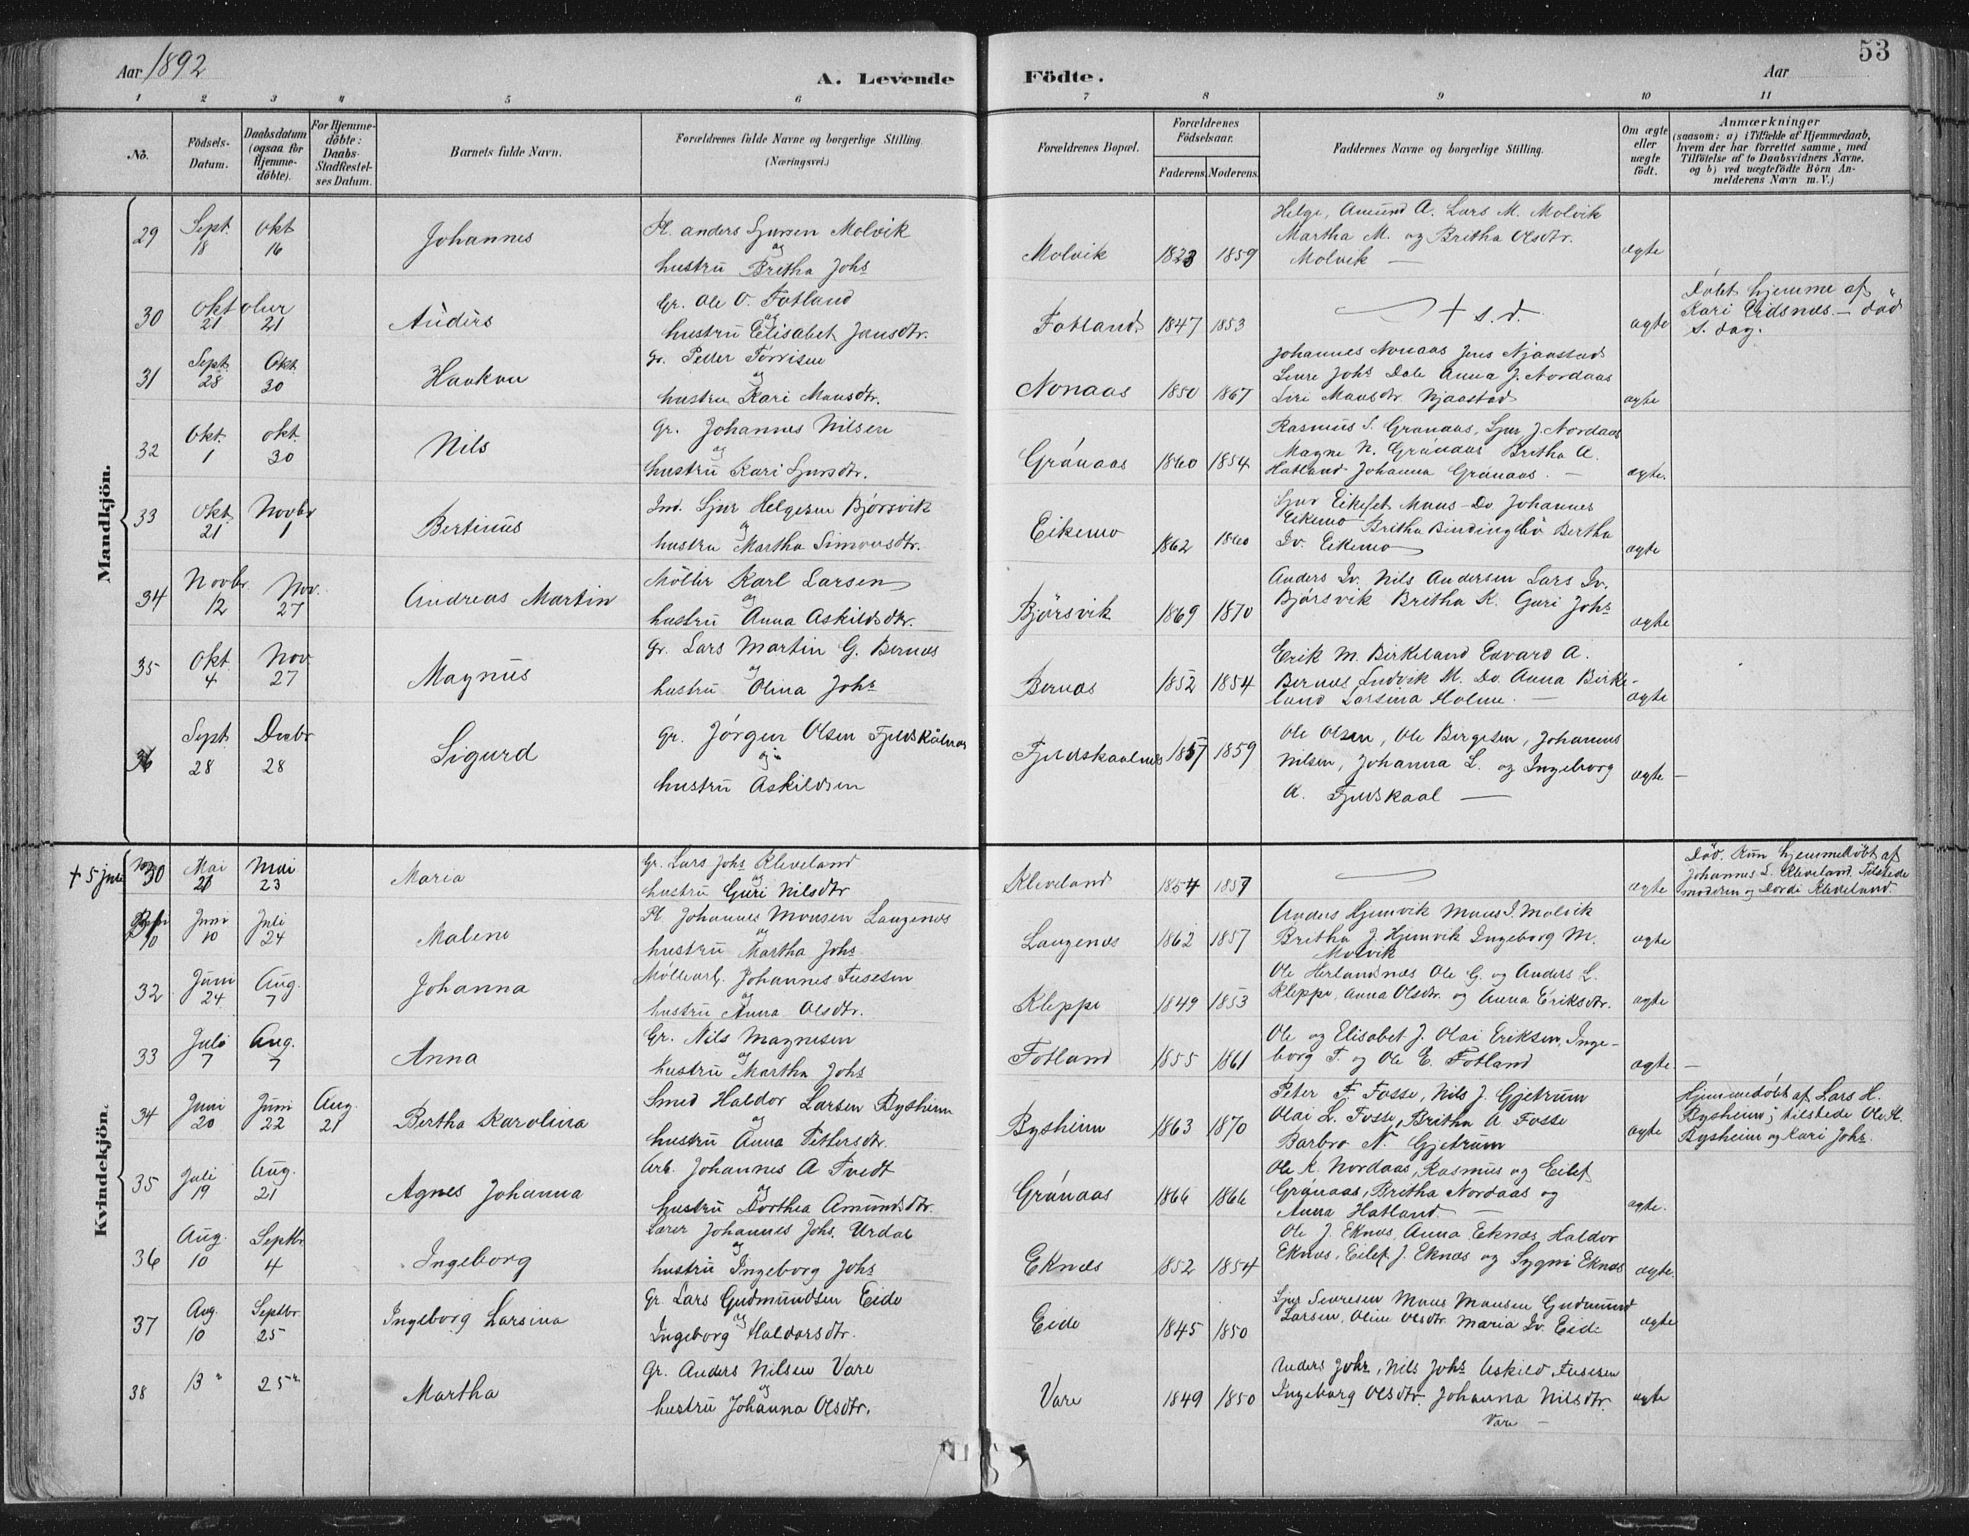 Aar 1892
A. Levende Födte.
Aar
53
1 2 3 4 5 6 7 8 9 10 11
No.
Födsels-Datum.
Daabsdatum (ogsaa for Hjemme-döbte).
For Hjemme-döbte: Daabs-Stadfæstel-ses Datum.
Barnets fulde Navn.
Forældrenes fulde Navne og borgerlige Stilling. (Næringsvei.)
Forældrenes Bopæl.
Forældrenes Födselsaar.
Faderens. Moderens.
Faddernes Navne og borgerlige Stilling.
Om ægte eller uægte födt.
Anmærkninger
(saasom: a) i Tilfælde af Hjemmedaab, hvem der har forrettet samme, med Tilföielse af to Daabsvidners Navne, og b) ved uægtefödte Börn An-melderens Navn m. V.)
Mandkjön.
29 Sept. 18 Okt 16 Johannes Pl. Anders Sjursen Molvik og hustru Britha Johs Molvik 1823 1859 Helge, Amund A. Lars M. Molvik Martha M. og Britha Olsdtr. Molvik — ægte
30 Oktober 21 21 Anders Gr. Ole O. Fotland og hustru Elisabet Jansdtr. Fotland. 1847 1853 † s.d. ægte Döbt hjemme af Kari Eidsnes. – död s. dag.
31 Sept. 28 Okt. 30 Haakon Gr. Peder og hustru Kari Monsdtr. Nonaas 1850 1867 Johannes Nonaas Jens Njaastad Johs Dale Anna J. Nordaas Monsdtr. Njaastad ægte
32 Okt. 1 Okt. 30 Nils Gr. Johannes Nilsen og hustru Kari Sjursdtr. Grönaas 1860 1854 Rasmus S. Grönaas, Sjur J. Nordaas Magne N. Grönaas Britha A. Hatland Johanna Grönaas. — ægte.
33 Okt. 21 Novbr 1 Bertinus Ind. Sjur Helgesen Björsvik og hustru Martha Simonsdtr. Eikemo 1862 1860 Sjur Eikefet Mons Do. Johannes Eikemo Britha Bindingbö Bertha Do. Eikemo ægte
34 Novbr 12 Nov. 27 Andreas Martin Möller Karl Larsen og hustru Anna Askildsdtr. Björsvik 1869 1870 Anders Do. Nils Andersen Lars Do. Björsvik Britha K. Guri Johs ægte
35 Okt. 4 Nov 27 Magnus Gr. Lars Martin G. Bernes og hustru Olina Johs Bernes 1852 1854 Erik M. Birkeland Edvard A. Bernes, Ludvik M. Do. Anna Birke-land Larsina Holme. — ægte
36 Sept. 28 Decbr 28 Sigurd Gr. Jörgen Olsen Fjeldskaalnes og hustru Askildsen Fjeldskaalnes 1857 1859 Ole Olsen, Ole Birgesen, Johannes Nilsen, Johanna L. og Ingeborg A. Fjeldskaal — ægte —
Kvindekjön.
† 5 juli 30 Mai 21 Mai 23 Maria Gr. Lars Johs Kleveland og hustru Guri Nilsdtr Kleveland 1854 1857 — ægte Död. Kun hjemmedöbt af Johannes L. Kleveland. Tilstede moderen og Dordi Kleveland.
Juni 10 Juli 24 Malene Pl. Johannes Monsen Langenes og hustru Martha Johs. Langenes 1862 1857 Anders Hjemvik Mons I. Molvik Britha J. Hjemvik Ingeborg M. Molvik ægte
32 Juni 24 Aug. 7 Johanna Möllearb. Johannes Fusesen og hustru Anna Olsdtr. Kleppe 1849 1853 Ole Herlandsnes Ole G. og Anders L. Kleppe, Anna Olsdtr. og Anna Eriksdtr. ægte
33 Juli 7 Aug. 7 Anna Gr. Nils Magnesen og hustru Martha Johs Fotland 1855 1861 Ole og Elisabet J. Olai Eriksen, Inge-borg T. og Ole E. Fotland ægte —
34 Juni 20 Juni 22 Aug. 21 Bertha Karolina Smed Haldor Larsen Bysheim og hustru Anna Pettersdtr. Bysheim 1863 1870 Peter F. Fosse, Nils J. Gjetrum Olai L. Fosse, Britha A. Fosse Barbro N. Gjetrum ægte Hjemmedöbt af Lars H. Bysheim; tilstede Ole H. Bysheim og Kari Johs.
35 Juli 19 Aug. 21 Agnes Johanna Arb. Johannes A Tvedt og hustru Dorthea Amundsdtr. Grönaas 1866 1866 Ole K. Nordaas, Rasmus og Eilef Grönaas, Britha Nordaas og Anna Hatland — ægte.
36 Aug. 10 Septbr 4 Ingeborg Lærer Johannes Johs. Urdal og hustru Ingeborg Johs Eknes 1852 1854 Ole J. Eknes, Anna Eknes, Haldor Eknes, Eilef J. Eknes og Sygni Eknes ægte.
37 Aug. 10 Septbr. 25 Ingeborg Larsina Gr. Lars Gudmundsen Eide og Ingeborg Haldorsdtr. Eide 1845 1850 Sjur Mons Monsen Gudmund Larsen, Oline Olsdtr. Maria Do. Eide ægte
38 13 " 25 " Martha Gr. Anders Nilsen Vare og hustru Johanna Olsdtr. Vare 1849 1850 Anders Johs, Nils Johs Askild Fusesen Ingeborg Olsdtr. Johanna Nilsdtr. Vare — ægte